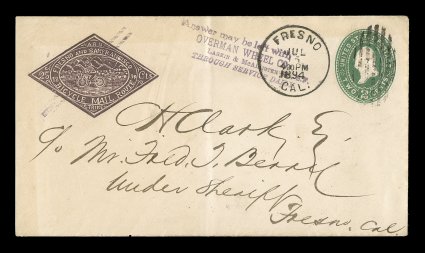 A.R.U.
FRESNO AND SAN FRANCISCO
25 Cts.
BICYCLE MAIL ROUTE
Answer may be left with
OVERMAN WHEEL CO.
THROUGH SERVICE
FRESNO
JUL
4 PM
1894
CAL.
UNITED STATES
TWO CENTS
H Clark, E
c/o Mr. Fred. J.
Under Sheriff
Fresno, Cal